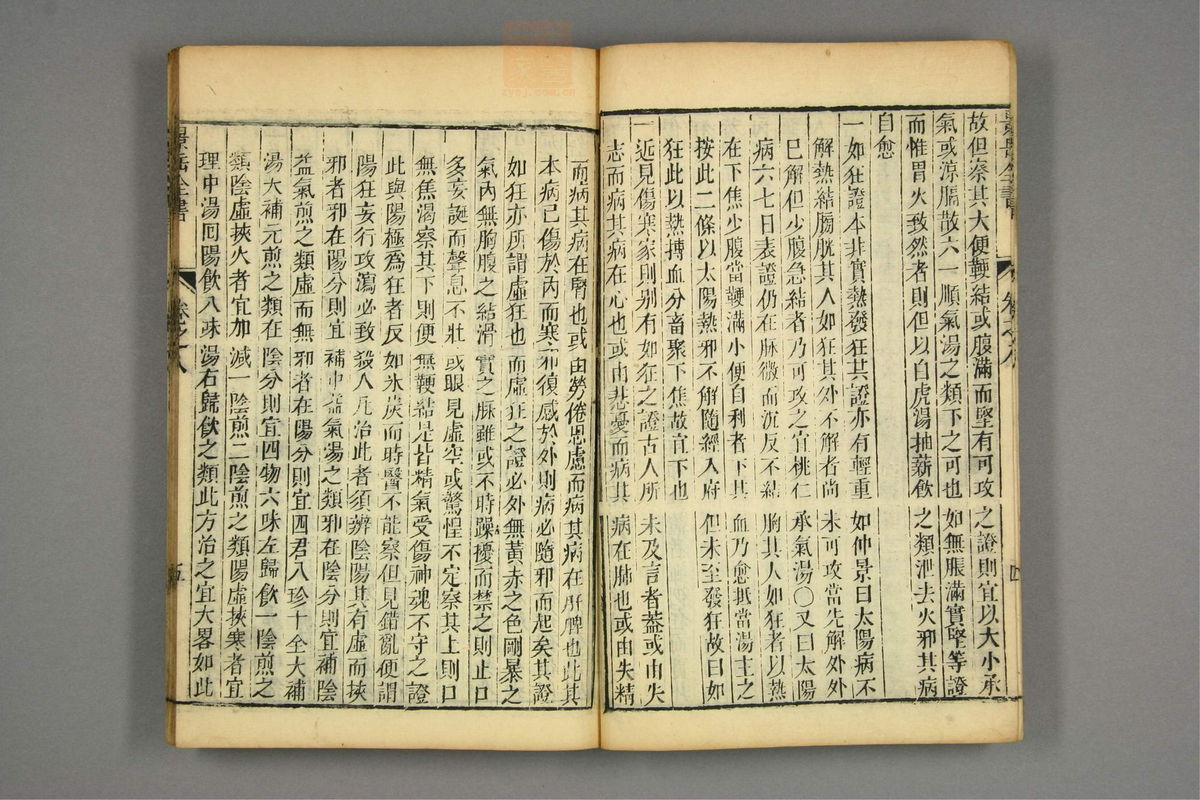 景岳全書 卷之八 四
故但察其大便鞕結或腹滿而堅有可攻之證則宜以大小承
氣或涼膈散六一順氣湯之類下之可也如無脹滿實堅等證
而惟胃火致然者則但以白虎湯抽薪飲之類泄去火邪其病
自愈
一如狂證本非實熱發狂其證亦有輕重如仲景曰太陽病不
解熱結膀胱其人如狂其外不解者尚未可攻當先解外外
已解但少腹急結者乃可攻之宜桃仁承氣湯〇又曰太陽
病六七日表證仍在脉微而沉反不結胸其人如狂者以熱
在下焦少腹當鞕滿小便自利者下其血乃愈抵當湯主之
按此二條以太陽熱邪不解隨經入府但未至發狂故曰如
狂此以熱搏血分畜聚下焦故宜下也
一近見傷寒家則别有如狂之證古人所未及言者蓋或由失
志而病其病在心也或由悲憂而病其病在肺也或由失精
而病其病在腎也或由勞倦思慮而病其病在肝脾也此其
本病已傷於內而寒邪復感於外則病必隨邪而起矣其證
如狂亦所謂虛狂也而虛狂之證必外無黃赤之色剛暴之
氣內無胸腹之結滑實之脉雖或不時躁擾而禁之則止口
多妄誕而聲息不壯或眼見虛空或驚惶不定察其上則口
無焦渴察其下則便無鞕結是皆精氣受傷神魂不守之證
此與陽極爲狂者反如氷炭而時醫不能察但見錯亂便謂
陽狂妄行攻瀉必致殺人凡治此者須辨陰陽其有虛而挾
邪者邪在陽分則宜補中益氣湯之類邪在陰分則宜補陰
益氣煎之類虛而無邪者在陽分則宜四君八珍十全大補
湯大補元煎之類在陰分則宜四物六味左歸飲一陰煎之
類陰虛挾火者宜加減一陰煎二陰煎之類陽虛挾寒者宜
理中湯回陽飲八味湯右歸飲之類此方治之宜大畧如此
景岳全書 卷之八 五